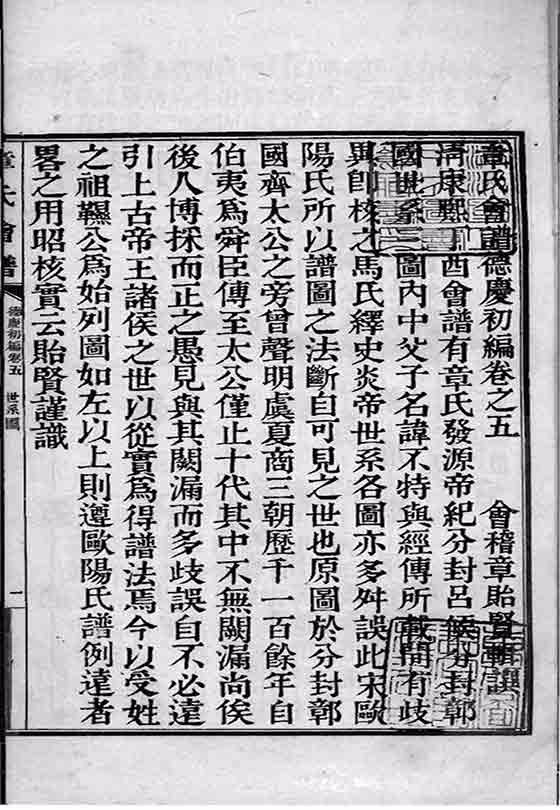 章氏會譜德慶初編卷之五　會稽章貽賢輯譔
清康熙　酉會譜有章氏發源帝紀分封呂侯分封鄣
國世系三圖內中父子名諱不特與經傳所載閒有歧
異卽核之馬氏繹史炎帝世系各圖亦多舛誤此宋歐
陽氏所以譜圖之法斷自可見之世也原圖於分封鄣
國齊太公之旁曾聲明虞夏商三朝歷千一百餘年自
伯夷爲舜臣傳至太公僅止十代其中不無闕漏尚俟
後人博採而正之愚見與其闕漏而多歧誤自不必遠
引上古帝王諸侯之世以從實爲得譜法焉今以受姓
之祖韅公爲始列圖如左以上則遵歐陽氏譜例遠者
畧之用昭核實云貽賢謹識
章氏會譜
德慶初編卷五　世系圖
一